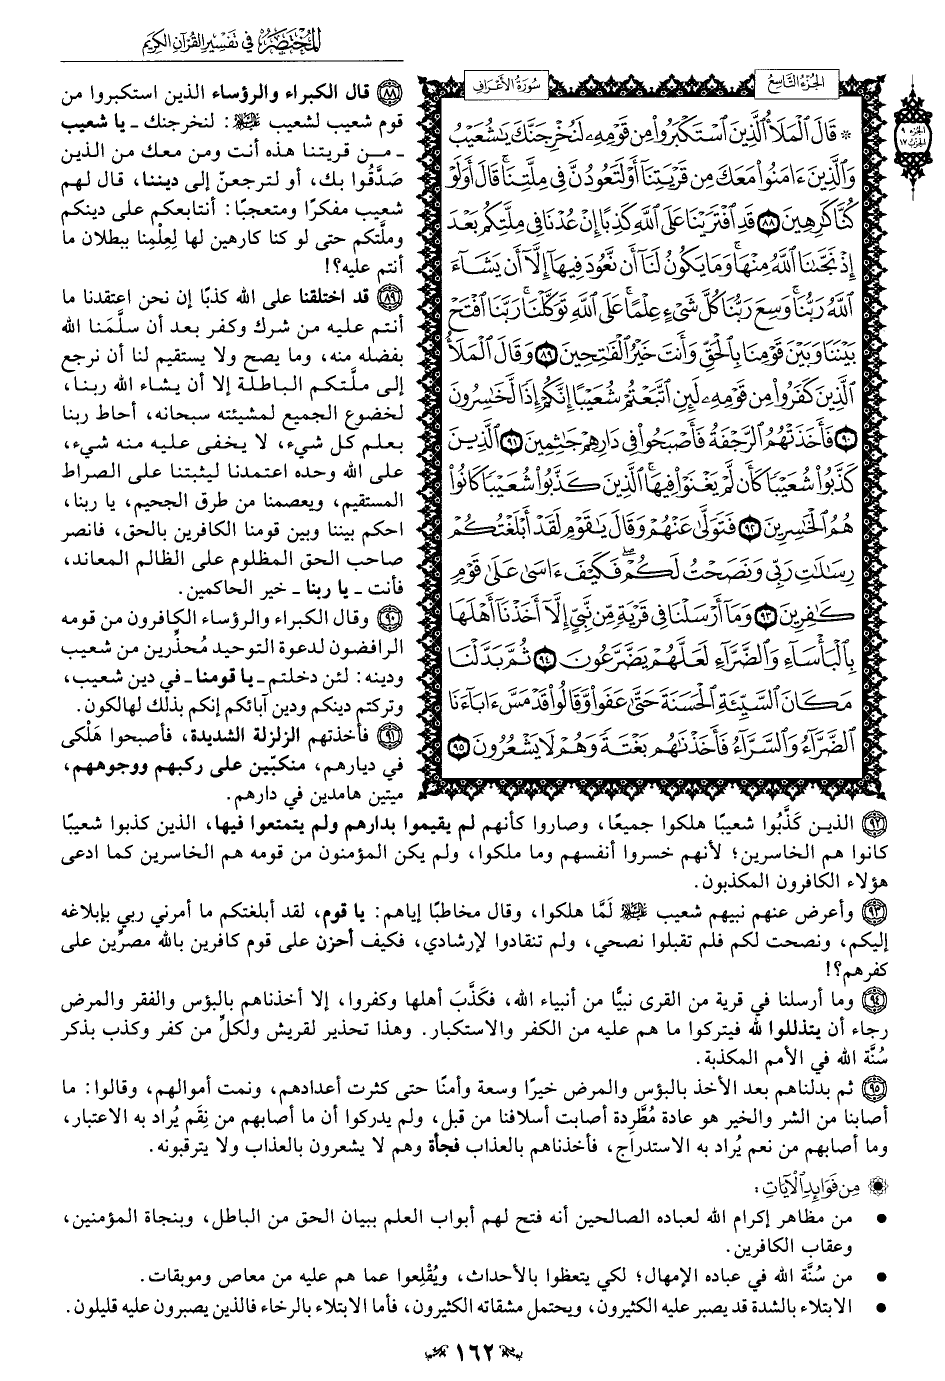 المختصر في تفسير القرآن الكريم
الجزء التاسع
سورة الأعراف
الجزء ٩
الحزب ١٧
* قَالَ ٱلْمَلَأُ ٱلَّذِينَ ٱسْتَكْبَرُوا۟ مِن قَوْمِهِۦ لَنُخْرِجَنَّكَ يَٰشُعَيْبُ
وَٱلَّذِينَ ءَامَنُوا۟ مَعَكَ مِن قَرْيَتِنَآ أَوْ لَتَعُودُنَّ فِى مِلَّتِنَا ۚ قَالَ أَوَلَوْ
كُنَّا كَٰرِهِينَ ٨٨ قَدِ ٱفْتَرَيْنَا عَلَى ٱللَّهِ كَذِبًا إِنْ عُدْنَا فِى مِلَّتِكُم بَعْدَ
إِذْ نَجَّىٰنَا ٱللَّهُ مِنْهَا ۚ وَمَا يَكُونُ لَنَآ أَن نَّعُودَ فِيهَآ إِلَّآ أَن يَشَآءَ
ٱللَّهُ رَبُّنَا ۚ وَسِعَ رَبُّنَا كُلَّ شَىْءٍ عِلْمًا ۚ عَلَى ٱللَّهِ تَوَكَّلْنَا ۚ رَبَّنَا ٱفْتَحْ
بَيْنَنَا وَبَيْنَ قَوْمِنَا بِٱلْحَقِّ وَأَنتَ خَيْرُ ٱلْفَٰتِحِينَ ٨٩ وَقَالَ ٱلْمَلَأُ
ٱلَّذِينَ كَفَرُوا۟ مِن قَوْمِهِۦ لَئِنِ ٱتَّبَعْتُمْ شُعَيْبًا إِنَّكُمْ إِذًا لَّخَٰسِرُونَ
٩٠ فَأَخَذَتْهُمُ ٱلرَّجْفَةُ فَأَصْبَحُوا۟ فِى دَارِهِمْ جَٰثِمِينَ ٩١ ٱلَّذِينَ
كَذَّبُوا۟ شُعَيْبًا كَأَن لَّمْ يَغْنَوْا۟ فِيهَا ۚ ٱلَّذِينَ كَذَّبُوا۟ شُعَيْبًا كَانُوا۟
هُمُ ٱلْخَٰسِرِينَ ٩٢ فَتَوَلَّىٰ عَنْهُمْ وَقَالَ يَٰقَوْمِ لَقَدْ أَبْلَغْتُكُمْ
رِسَٰلَٰتِ رَبِّى وَنَصَحْتُ لَكُمْ ۖ فَكَيْفَ ءَاسَىٰ عَلَىٰ قَوْمٍ
كَٰفِرِينَ ٩٣ وَمَآ أَرْسَلْنَا فِى قَرْيَةٍ مِّن نَّبِىٍّ إِلَّآ أَخَذْنَآ أَهْلَهَا
بِٱلْبَأْسَآءِ وَٱلضَّرَّآءِ لَعَلَّهُمْ يَضَّرَّعُونَ ٩٤ ثُمَّ بَدَّلْنَا
مَكَانَ ٱلسَّيِّئَةِ ٱلْحَسَنَةَ حَتَّىٰ عَفَوا۟ وَّقَالُوا۟ قَدْ مَسَّ ءَابَآءَنَا
ٱلضَّرَّآءُ وَٱلسَّرَّآءُ فَأَخَذْنَٰهُم بَغْتَةً وَهُمْ لَا يَشْعُرُونَ ٩٥
٨٨ قال الكبراء والرؤساء الذين استكبروا من
قوم شعيب لشعيب ﷺ: لنخرجنك ـ يا شعيب
ـ من قريتنا هذه أنت ومن معك من الذين
صَدَّقُوا بك، أو لترجعنّ إلى ديننا، قال لهم
شعيب مفكرًا ومتعجبًا: أنتابعكم على دينكم
وملَّتكم حتى لو كنا كارهين لها لِعِلْمِنا ببطلان ما
أنتم عليه؟!
٨٩ قد اختلقنا على الله كذبًا إن نحن اعتقدنا ما
أنتم عليه من شرك وكفر بعد أن سلَّمَنا الله
بفضله منه، وما يصح ولا يستقيم لنا أن نرجع
إلى ملَّتكم الباطلة إلا أن يشاء الله ربنا،
لخضوع الجميع لمشيئته سبحانه، أحاط ربنا
بعلم كل شيء، لا يخفى عليه منه شيء،
على الله وحده اعتمدنا ليثبتنا على الصراط
المستقيم، ويعصمنا من طرق الجحيم، يا ربنا،
احكم بيننا وبين قومنا الكافرين بالحق، فانصر
صاحب الحق المظلوم على الظالم المعاند،
فأنت ـ يا ربنا ـ خير الحاكمين.
٩٠ وقال الكبراء والرؤساء الكافرون من قومه
الرافضون لدعوة التوحيد مُحذِّرين من شعيب
ودينه: لئن دخلتم ـ يا قومنا ـ في دين شعيب،
وتركتم دينكم ودين آبائكم إنكم بذلك لهالكون.
٩١ فأخذتهم الزلزلة الشديدة، فأصبحوا هَلْكى
في ديارهم، منكبّين على ركبهم ووجوههم،
ميتين هامدين في دارهم.
٩٢ الذين كَذَّبُوا شعيبًا هلكوا جميعًا، وصاروا كأنهم لم يقيموا بدارهم ولم يتمتعوا فيها، الذين كذبوا شعيبًا
كانوا هم الخاسرين؛ لأنهم خسروا أنفسهم وما ملكوا، ولم يكن المؤمنون من قومه هم الخاسرين كما ادعى
هؤلاء الكافرون المكذبون.
٩٣ وأعرض عنهم نبيهم شعيب ﷺ لَمَّا هلكوا، وقال مخاطبًا إياهم: يا قوم، لقد أبلغتكم ما أمرني ربي بإبلاغه
إليكم، ونصحت لكم فلم تقبلوا نصحي، ولم تنقادوا لإرشادي، فكيف أحزن على قوم كافرين بالله مصرِّين على
كفرهم؟!
٩٤ وما أرسلنا في قرية من القرى نبيًّا من أنبياء الله، فكَذَّبَ أهلها وكفروا، إلا أخذناهم بالبؤس والفقر والمرض
رجاء أن يتذللوا لله فيتركوا ما هم عليه من الكفر والاستكبار. وهذا تحذير لقريش ولكلِّ من كفر وكذب بذكر
سُنَّة الله في الأمم المكذبة.
٩٥ ثم بدلناهم بعد الأخذ بالبؤس والمرض خيرًا وسعة وأمنًا حتى كثرت أعدادهم، ونمت أموالهم، وقالوا: ما
أصابنا من الشر والخير هو عادة مُطَّرِدة أصابت أسلافنا من قبل، ولم يدركوا أن ما أصابهم من نِقَم يُراد به الاعتبار،
وما أصابهم من نعم يُراد به الاستدراج، فأخذناهم بالعذاب فجأة وهم لا يشعرون بالعذاب ولا يترقبونه.
من فوائد الآيات:
• من مظاهر إكرام الله لعباده الصالحين أنه فتح لهم أبواب العلم ببيان الحق من الباطل، وبنجاة المؤمنين،
وعقاب الكافرين.
• من سُنَّة الله في عباده الإمهال؛ لكي يتعظوا بالأحداث، ويُقْلِعوا عما هم عليه من معاصٍ وموبقات.
• الابتلاء بالشدة قد يصبر عليه الكثيرون، ويحتمل مشقاته الكثيرون، فأما الابتلاء بالرخاء فالذين يصبرون عليه قليلون.
١٦٢